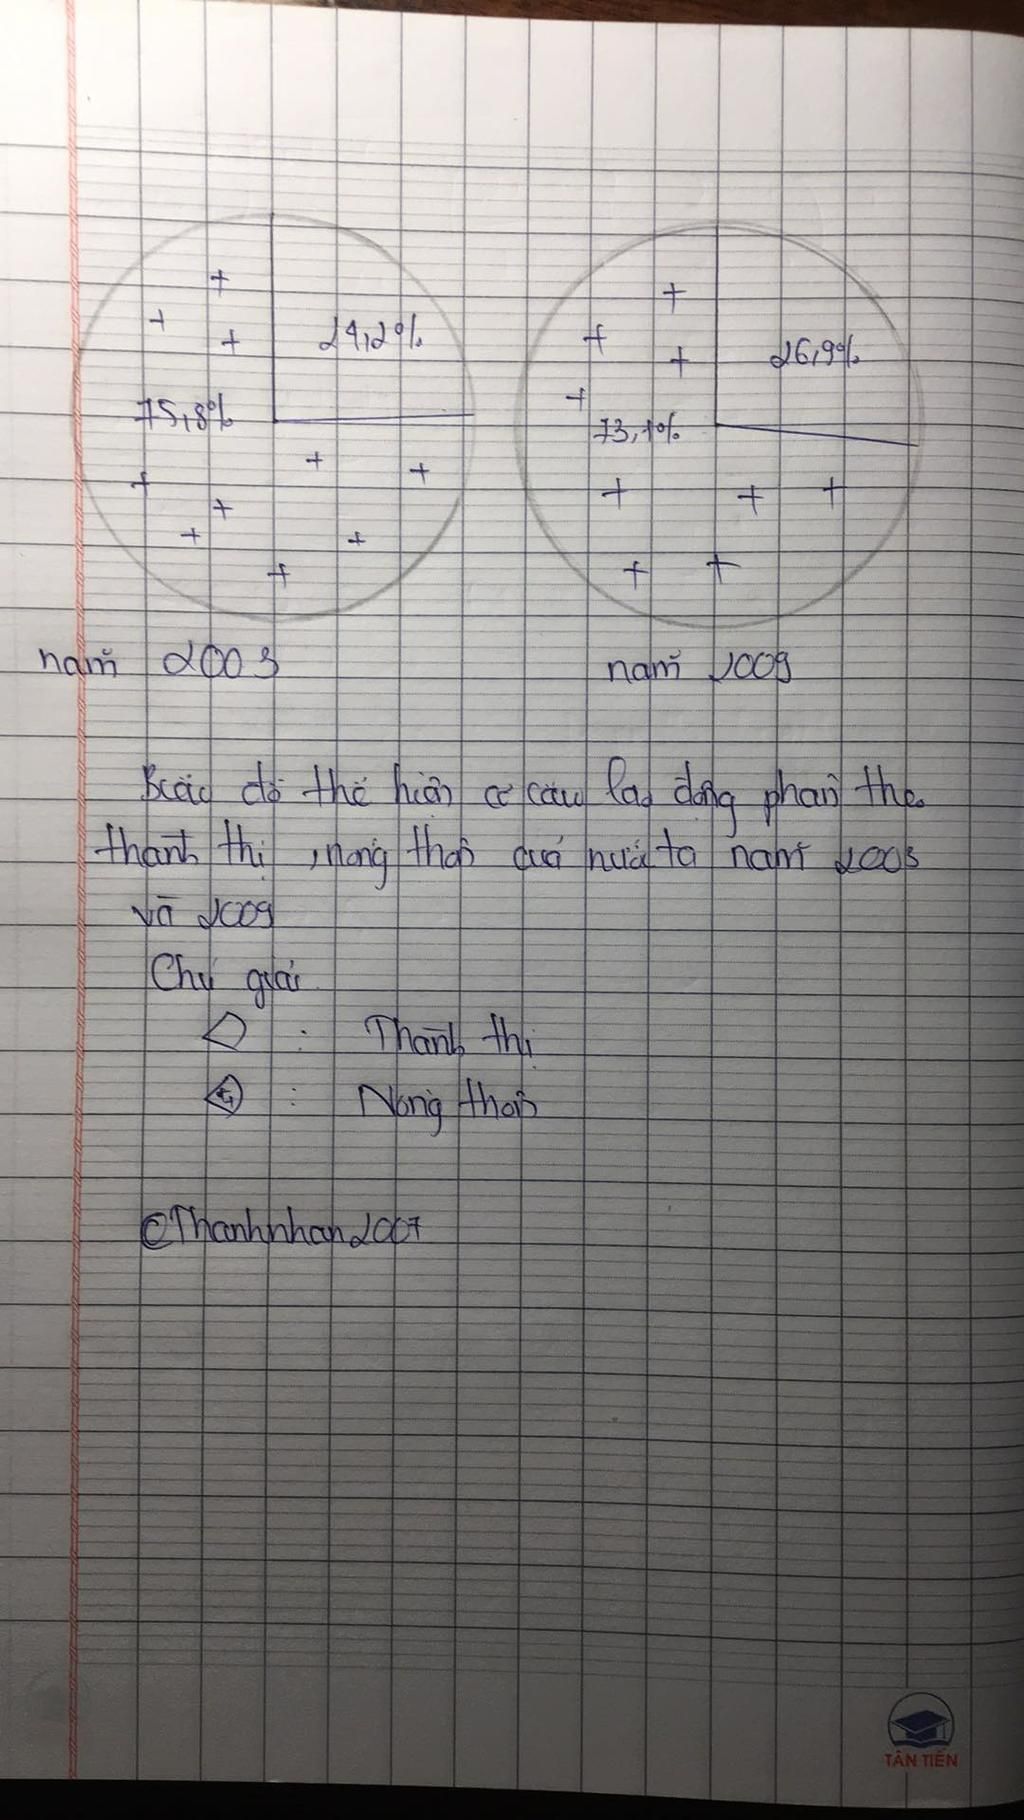 24,2%
75,8%
26,9%
73,1%
năm 2003
năm 2009
Biểu đồ thể hiện cơ cấu lao động phân theo
thành thị, nông thôn của nước ta năm 2003
và 2009
Chú giải
: Thành thị
: Nông thôn
©Thanhnhan2007
TÂN TIẾN